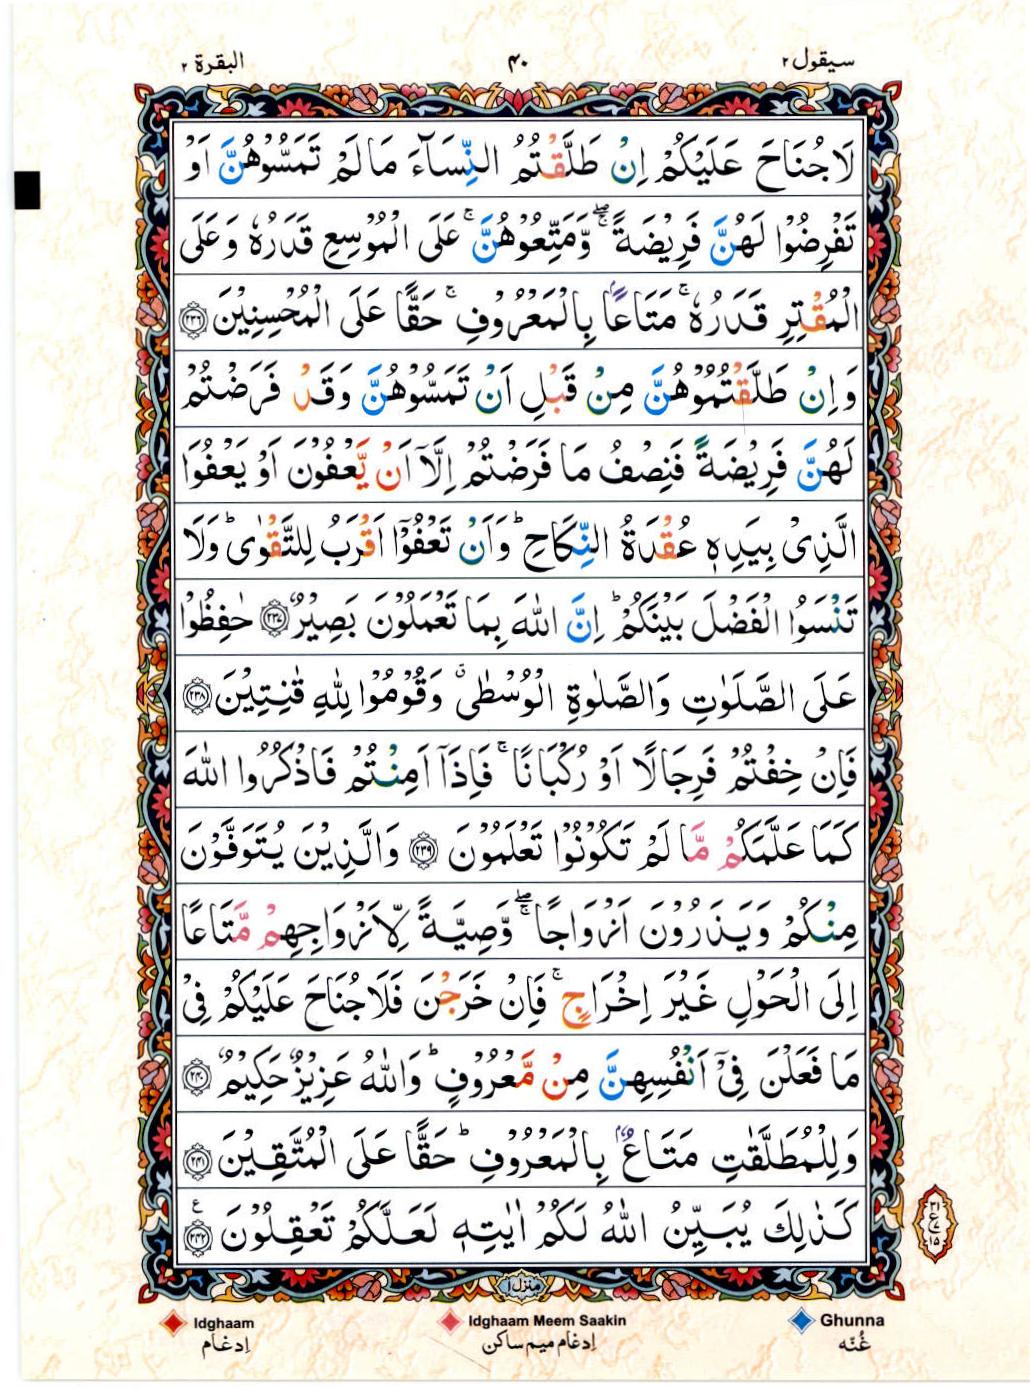 سيقول ٢ ٤٠ البقرة ٢
لَا جُنَاحَ عَلَيْكُمْ اِنْ طَلَّقْتُمُ النِّسَآءَ مَا لَمْ تَمَسُّوْهُنَّ اَوْ
تَفْرِضُوْا لَهُنَّ فَرِيْضَةً ۖۚ وَّمَتِّعُوْهُنَّ ۚ عَلَى الْمُوْسِعِ قَدَرُهٗ وَعَلَى
الْمُقْتِرِ قَدَرُهٗ ۚ مَتَاعًاۢ بِالْمَعْرُوْفِ ۚ حَقًّا عَلَى الْمُحْسِنِيْنَ ﴿۲۳۶﴾
وَاِنْ طَلَّقْتُمُوْهُنَّ مِنْ قَبْلِ اَنْ تَمَسُّوْهُنَّ وَقَدْ فَرَضْتُمْ
لَهُنَّ فَرِيْضَةً فَنِصْفُ مَا فَرَضْتُمْ اِلَّاۤ اَنْ يَّعْفُوْنَ اَوْ يَعْفُوَا
الَّذِىْ بِيَدِهٖ عُقْدَةُ النِّكَاحِ ؕ وَاَنْ تَعْفُوْۤا اَقْرَبُ لِلتَّقْوٰى ؕ وَلَا
تَنْسَوُا الْفَضْلَ بَيْنَكُمْ ؕ اِنَّ اللّٰهَ بِمَا تَعْمَلُوْنَ بَصِيْرٌ ﴿۲۳۷﴾ حٰفِظُوْا
عَلَى الصَّلَوٰتِ وَالصَّلٰوةِ الْوُسْطٰى ۗ وَقُوْمُوْا لِلّٰهِ قٰنِتِيْنَ ﴿۲۳۸﴾
فَاِنْ خِفْتُمْ فَرِجَالًا اَوْ رُكْبَانًا ۚ فَاِذَاۤ اَمِنْتُمْ فَاذْكُرُوا اللّٰهَ
كَمَا عَلَّمَكُمْ مَّا لَمْ تَكُوْنُوْا تَعْلَمُوْنَ ﴿۲۳۹﴾ وَالَّذِيْنَ يُتَوَفَّوْنَ
مِنْكُمْ وَيَذَرُوْنَ اَزْوَاجًا ۖۚ وَّصِيَّةً لِّاَزْوَاجِهِمْ مَّتَاعًا
اِلَى الْحَوْلِ غَيْرَ اِخْرَاجٍ ۚ فَاِنْ خَرَجْنَ فَلَا جُنَاحَ عَلَيْكُمْ فِىْ
مَا فَعَلْنَ فِىْۤ اَنْفُسِهِنَّ مِنْ مَّعْرُوْفٍ ؕ وَاللّٰهُ عَزِيْزٌ حَكِيْمٌ ﴿۲۴۰﴾
وَلِلْمُطَلَّقٰتِ مَتَاعٌۢ بِالْمَعْرُوْفِ ؕ حَقًّا عَلَى الْمُتَّقِيْنَ ﴿۲۴۱﴾
كَذٰلِكَ يُبَيِّنُ اللّٰهُ لَكُمْ اٰيٰتِهٖ لَعَلَّكُمْ تَعْقِلُوْنَ ﴿۲۴۲﴾ ع
منزل ١
Idghaam Idghaam Meem Saakin Ghunna
إدغام إدغام ميم ساكن غُنّه